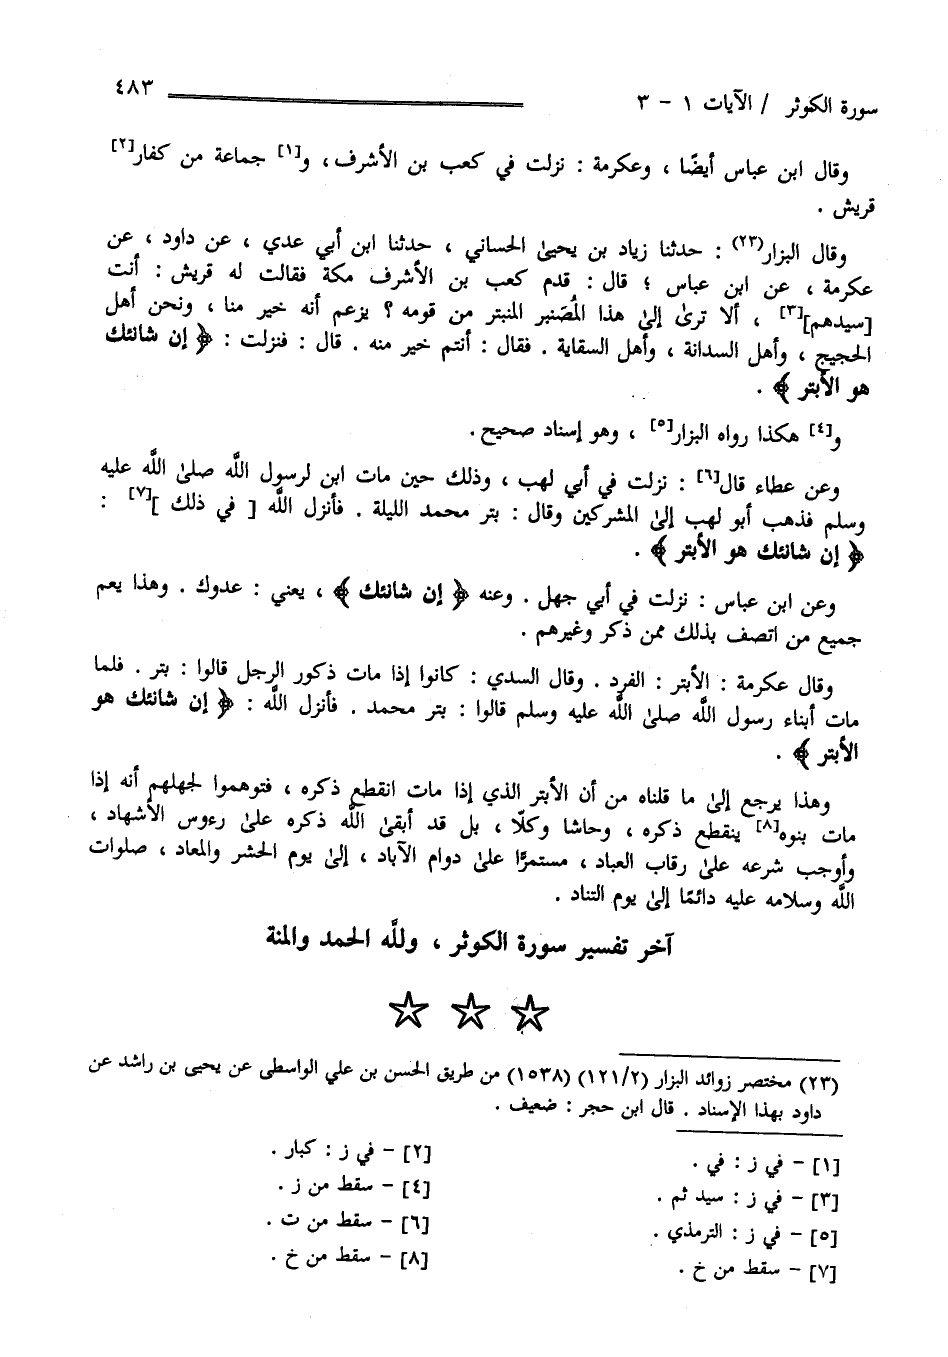 سورة الكوثر / الآيات ١ - ٣ ٤٨٣
وقال ابن عباس أيضًا ، وعكرمة : نزلت في كعب بن الأشرف، و[١] جماعة من كفار[٢]
قريش .
وقال البزار(٢٣) : حدثنا زياد بن يحيىٰ الحساني ، حدثنا ابن أبي عدي ، عن داود ، عن
عكرمة ، عن ابن عباس ؛ قال : قدم كعب بن الأشرف مكة فقالت له قريش : أنت
[سيدهم][٣] ، ألا ترىٰ إلىٰ هذا المُصَنبر المنبتر من قومه ؟ يزعم أنه خير منا ، ونحن أهل
الحجيج ، وأهل السدانة ، وأهل السقاية . فقال : أنتم خير منه . قال : فنزلت : ﴿ إن شانئك
هو الأبتر ﴾ .
و[٤] هكذا رواه البزار[٥] ، وهو إسناد صحيح .
وعن عطاء قال[٦] : نزلت في أبي لهب ، وذلك حين مات ابن لرسول اللَّه صلىٰ اللَّه عليه
وسلم فذهب أبو لهب إلىٰ المشركين وقال : بتر محمد الليلة . فأنزل اللَّه [ في ذلك ][٧] :
﴿ إن شانئك هو الأبتر ﴾ .
وعن ابن عباس : نزلت في أبي جهل . وعنه ﴿ إن شانئك ﴾ ، يعني : عدوك . وهذا يعم
جميع من اتصف بذلك ممن ذكر وغيرهم .
وقال عكرمة : الأبتر : الفرد . وقال السدي : كانوا إذا مات ذكور الرجل قالوا : بتر . فلما
مات أبناء رسول اللَّه صلىٰ اللَّه عليه وسلم قالوا : بتر محمد . فأنزل اللَّه : ﴿ إن شانئك هو
الأبتر ﴾ .
وهذا يرجع إلىٰ ما قلناه من أن الأبتر الذي إذا مات انقطع ذكره ، فتوهموا لجهلهم أنه إذا
مات بنوه[٨] ينقطع ذكره ، وحاشا وكلّا ، بل قد أبقىٰ اللَّه ذكره علىٰ رءوس الأشهاد ،
وأوجب شرعه علىٰ رقاب العباد ، مستمرًّا علىٰ دوام الآباد ، إلىٰ يوم الحشر والمعاد ، صلوات
اللَّه وسلامه عليه دائمًا إلىٰ يوم التناد .
آخر تفسير سورة الكوثر ، وللَّه الحمد والمنة
(٢٣) مختصر زوائد البزار (١٢١/٢) (١٥٣٨) من طريق الحسن بن علي الواسطى عن يحيى بن راشد عن
داود بهذا الإسناد . قال ابن حجر : ضعيف .
[١] - في ز : في . [٢] - في ز : كبار .
[٣] - في ز : سيد ثم . [٤] - سقط من ز .
[٥] - في ز : الترمذي . [٦] - سقط من ت .
[٧] - سقط من خ . [٨] - سقط من خ .